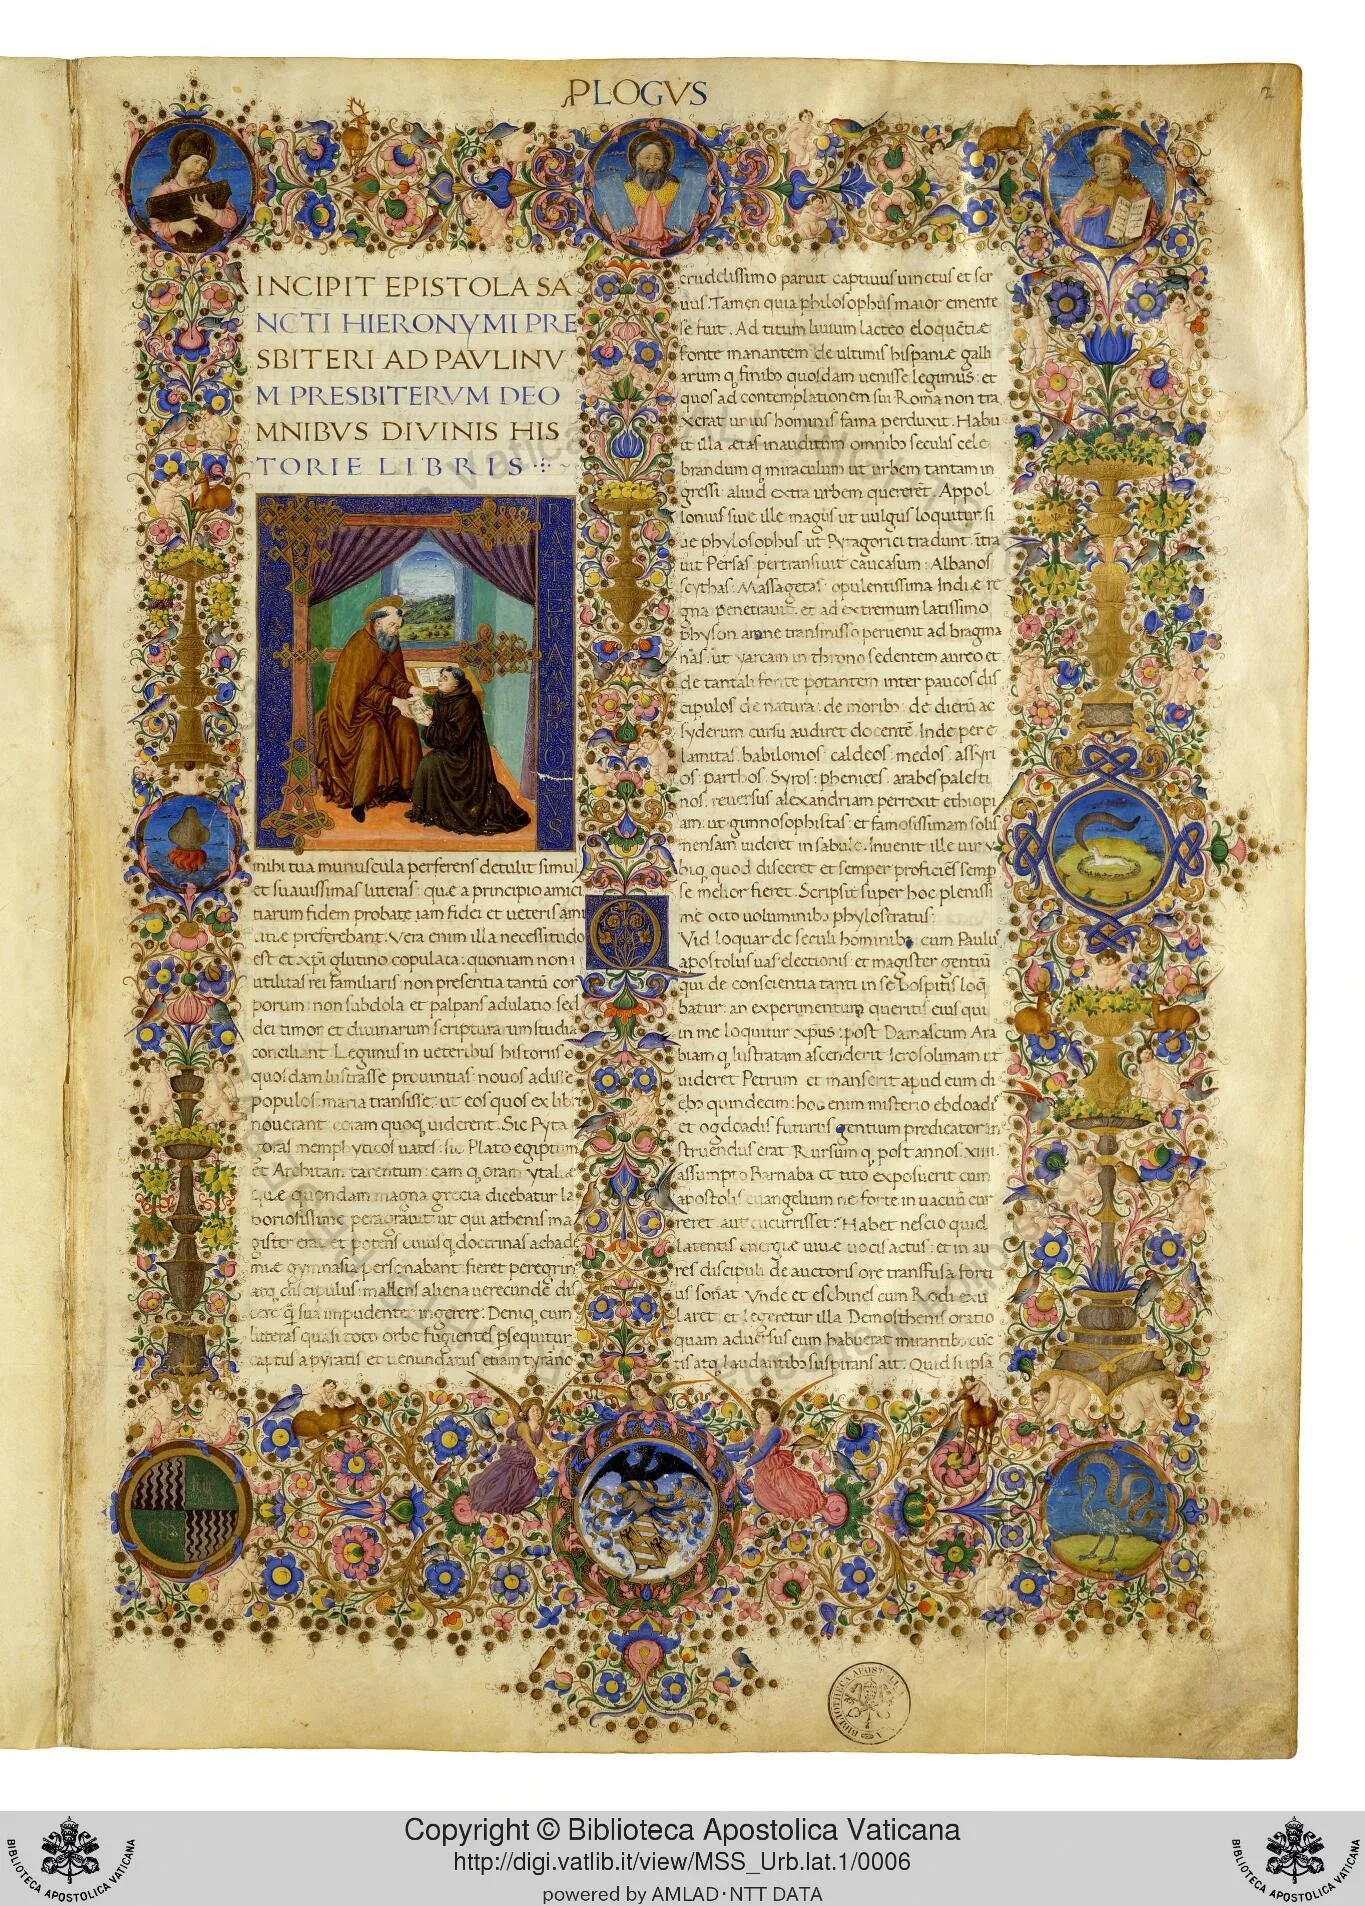 PLOGVS
2
INCIPIT EPISTOLA SA
NCTI HIERONYMI PRE
SBITERI AD PAVLINV
M PRESBITERVM DE O
MNIBVS DIVINIS HIS
TORIE LIBRIS
FRATER AMBROSIVS
mihi tua munuscula perferens detulit simul
et suauissimas litteras: quæ a principio amici
tiarum fidem probatæ iam fidei et ueteris ami
citiæ preferebant. Vera enim illa necessitudo
est et xpi glutino copulata: quoniam non i
utilitas rei familiaris: non presentia tantū cor
porum: non subdola et palpans adulatio. sed
dei timor et diuinarum scripturarum studia
conciliant. Legimus in ueteribus historiis
quosdam lustrasse prouintias: nouos adisse
populos: maria transisse: ut eos quos ex libris
nouerant: coram quoq; uiderent. Sic Pyta
goras memphyticos uates: sic Plato egiptum
et Architam tarentum: eam q; oram ytaliæ
quæ quondam magna grecia dicebatur la
boriosissime peragrauit: ut qui athenis ma
gister erat et potens cuius q; doctrinas achade
miæ gymnasia personabant fieret peregrinus
atq; discipulus: mallens aliena uerecunde dis
cere q̄ sua impudenter ingerere: Deniq; cum
litteras quasi toto orbe fugientes psequitur
captus a pyratis et uenundatus etiam tyranno
crudelissimo paruit captiuus uinctus et ser
uus. Tamen quia philosophus maior emente
se fuit. Ad titum liuium lacteo eloquētiæ
fonte manantem de ultimis hispaniæ galli
arum q; finibus quosdam uenisse legimus: et
quos ad contemplationem sui Roma non tra
xerat unius hominis fama perduxit. Habu
it illa ætas inauditum omnibus seculis cele
brandum q; miraculum ut urbem tantam in
gressi: aliud extra urbem quererēt. Appol
lonius siue ille magus ut uulgus loquitur si
ue phylosophus ut Pytagorici tradunt: ītra
uit Persas pertransiuit caucasum: Albanos
scythas: Massagetas: opulentissima Indiæ re
gna penetrauit: et ad extremum latissimo
physon amne transmisso peruenit ad bragma
nas: ut yarcam in throno sedentem aureo et
de tantali fonte potantem inter paucos dis
cipulos de natura: de moribus: de dierū ac
syderum cursu audiret docentē. Inde per e
lamitas: babilonios: caldeos: medos: assyri
os: parthos: Syros: phenices: arabes palesti
nos: reuersus alexandriam perrexit ethiopi
am: ut gimnosophistas: et famosissimam solis
mensam uideret in sabulo. Inuenit ille uir v
biq; quod disceret et semper proficiēs semp
se melior fieret. Scripsit super hoc plenissi
me octo uoluminibus phylostratus:
QVid loquar de seculi hominibus: cum Paulus
apostolus uas electionis: et magister gentiū
qui de conscientia tanti in se hospitis loq
batur: an experimentum queritis eius qui
in me loquitur xp̄us: post Damascum Ara
biam q; lustratam ascenderit Ierosolimam ut
uideret Petrum et manserit apud eum di
ebus quindecim: hoc enim misterio ebdoadis
et ogdoadis futurus gentium predicator in
struendus erat Rursum q; post annos .xiiii.
assumpto Barnaba et tito exposuerit cum
apostolis euangelium ne forte in uacuū cur
reret aut cucurrisset: Habet nescio quid
latentis energiæ uiuæ uocis actus: et in au
res discipuli de auctoris ore transfusa forti
us sonat. Vnde et eschines cum Rodi exu
laret: et legeretur illa Demosthenis oratio
quam aduersus eum habuerat mirantibus cūc
tis atq; laudantibus suspirans ait. Quid si ipsā
Copyright © Biblioteca Apostolica Vaticana
http://digi.vatlib.it/view/MSS_Urb.lat.1/0006
powered by AMLAD·NTT DATA
BIBLIOTECA APOSTOLICA VATICANA
BIBLIOTECA APOSTOLICA VATICANA